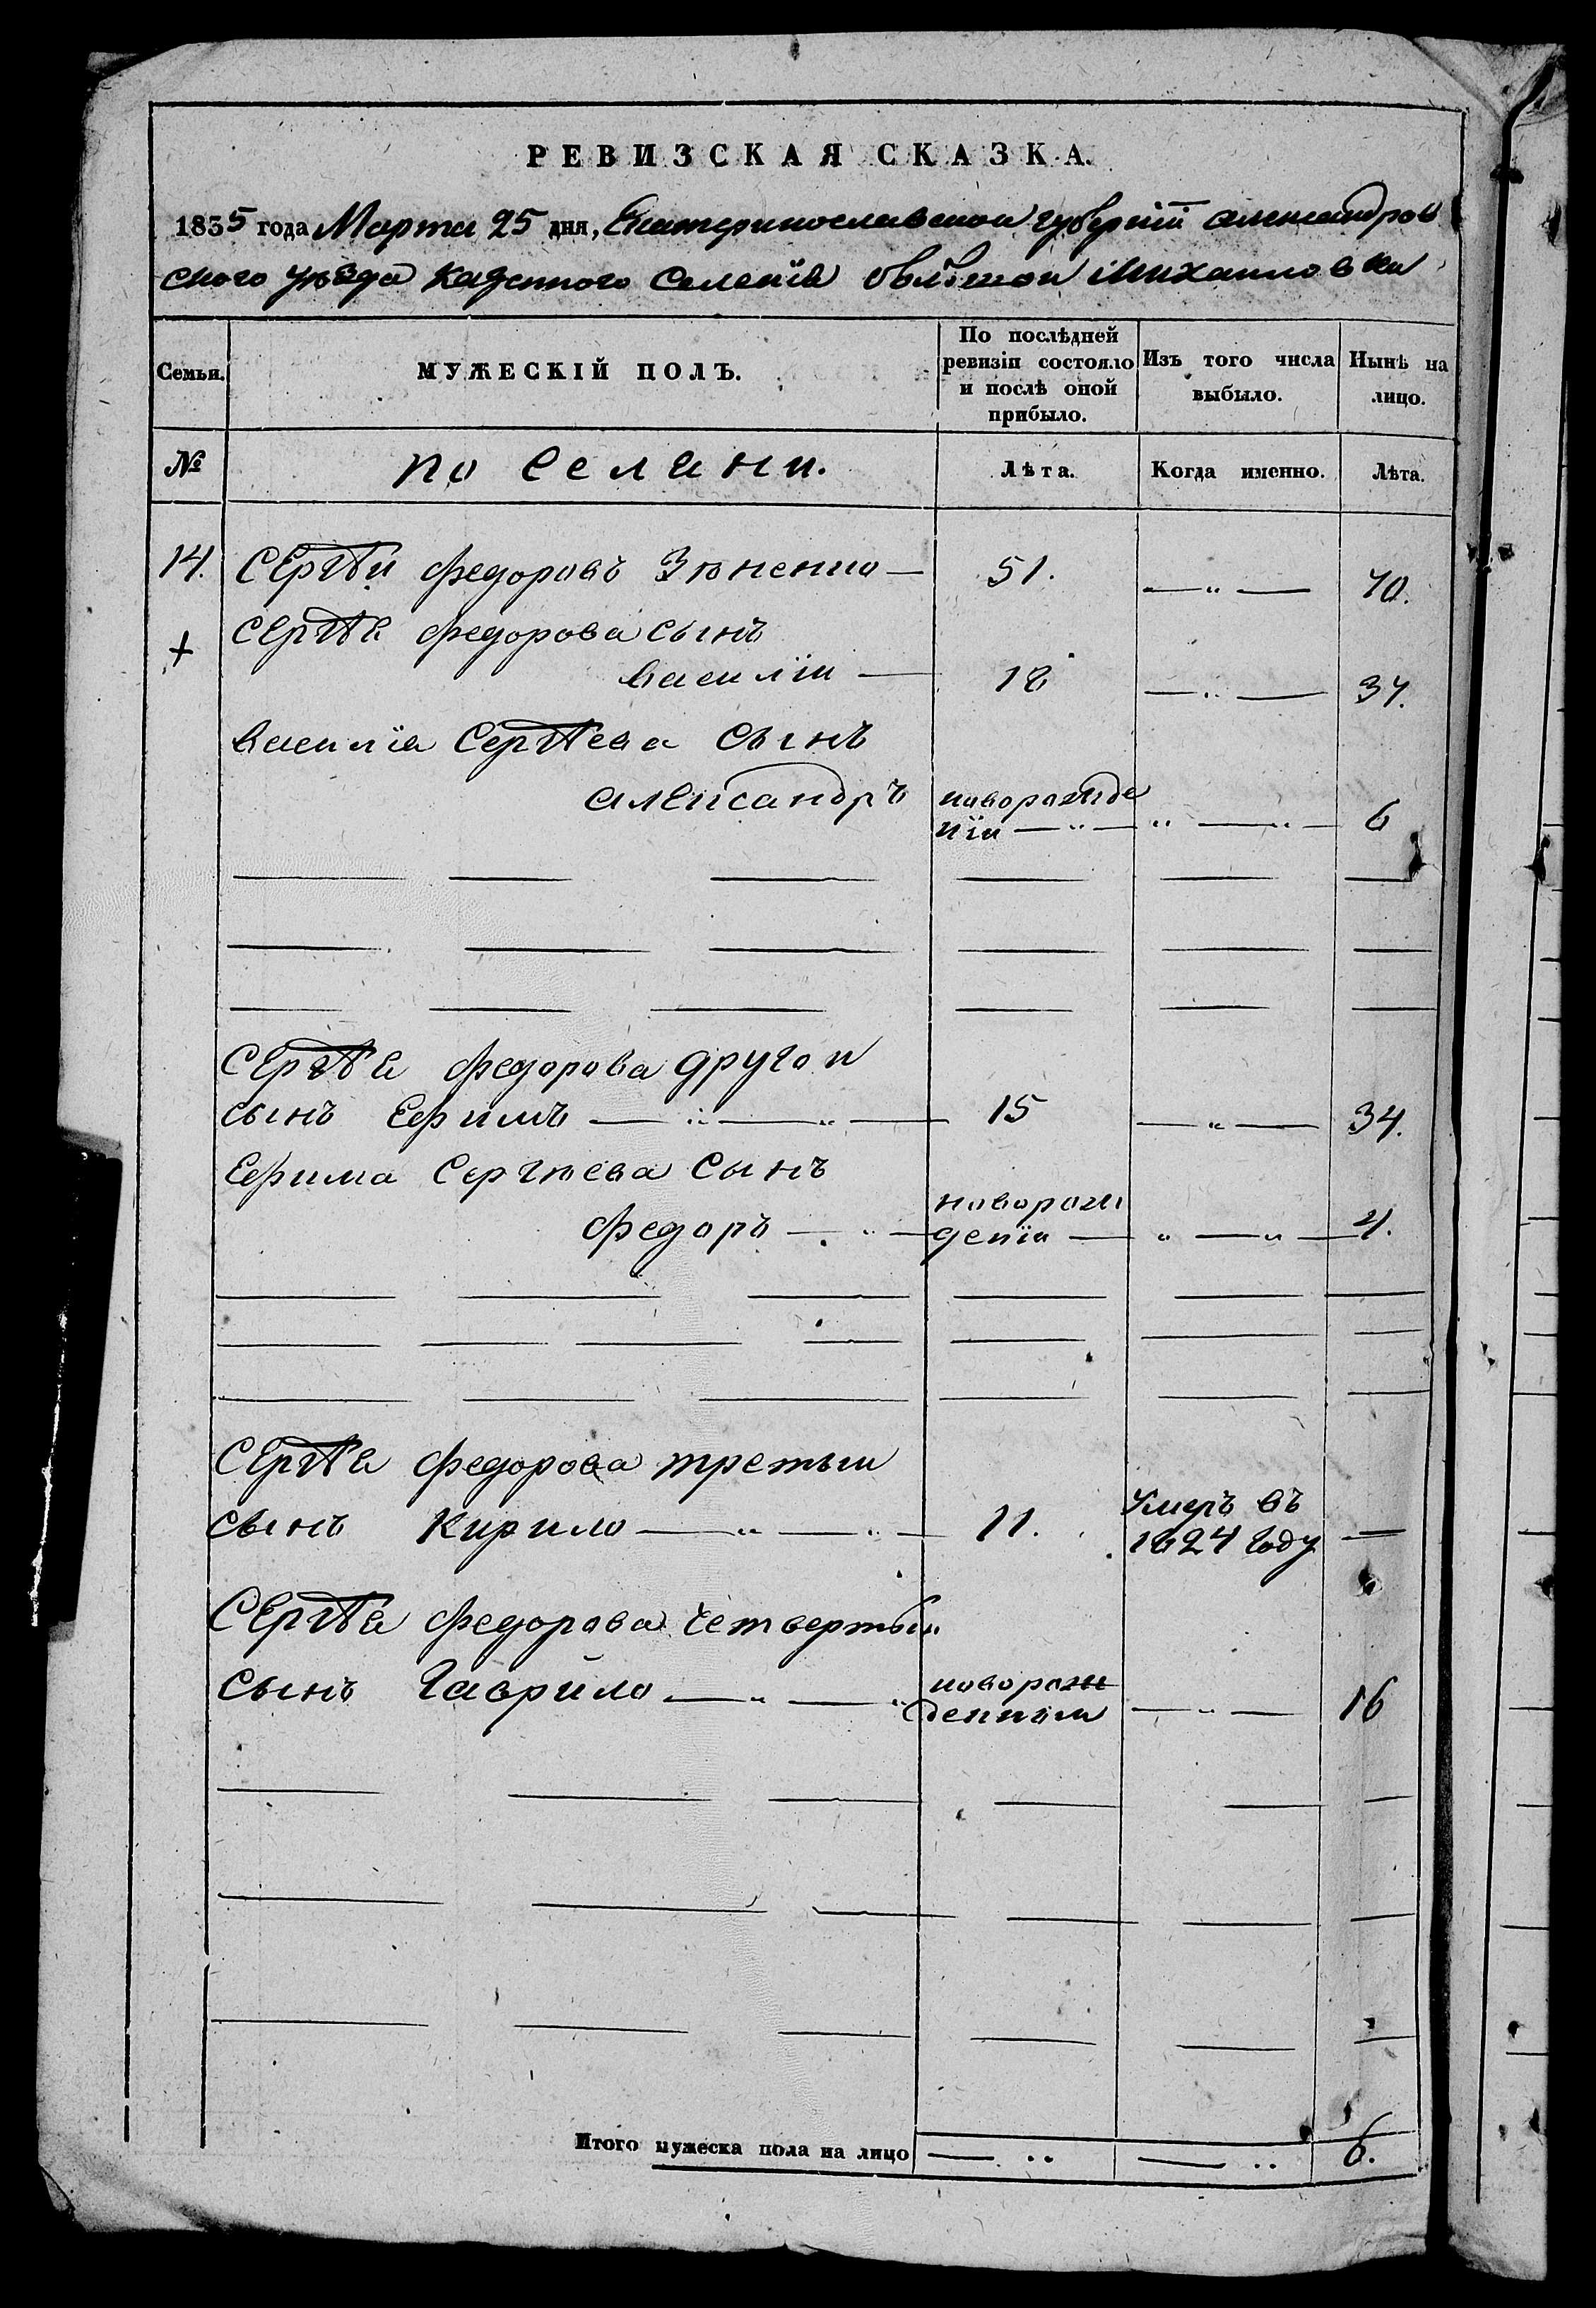 РЕВИЗСКАЯ СКАЗКА.
1835 года Марта 25 дня, Екатеринославской губернїи александров
ского уѣзда казенного селенїя болшой михаиловки
Семьи. МУЖЕСКІЙ ПОЛЪ. По послѣдней ревизіи состояло и послѣ оной прибыло. Изъ того числа выбыло. Нынѣ на лицо.
№ поселяни. Лѣта. Когда именно. Лѣта.
14. Сергѣи федоровъ Зѣненко — 51. — „ — 70.
+ Сергѣя федорова сынъ
василїи — 18 — „ — 37.
василїя Сергѣева сынъ
александръ новорожде
нїи — „ — „ — „ — 6
Сергѣя федорова другои
сынъ Ефимъ — „ — „ — 15 — „ — 34.
Ефима Сергѣева сынъ
федоръ — „ — новорож
денїи — „ — „ — 4.
Сергѣя федорова третьи
сынъ кирило — „ — „ — 11. умеръ въ
1824 году —
Сергѣя федорова четвертыи
сынъ Гаврило — „ — „ новорож
деннои — „ — 16
Итого мужеска пола на лицо — „ — „ 6.